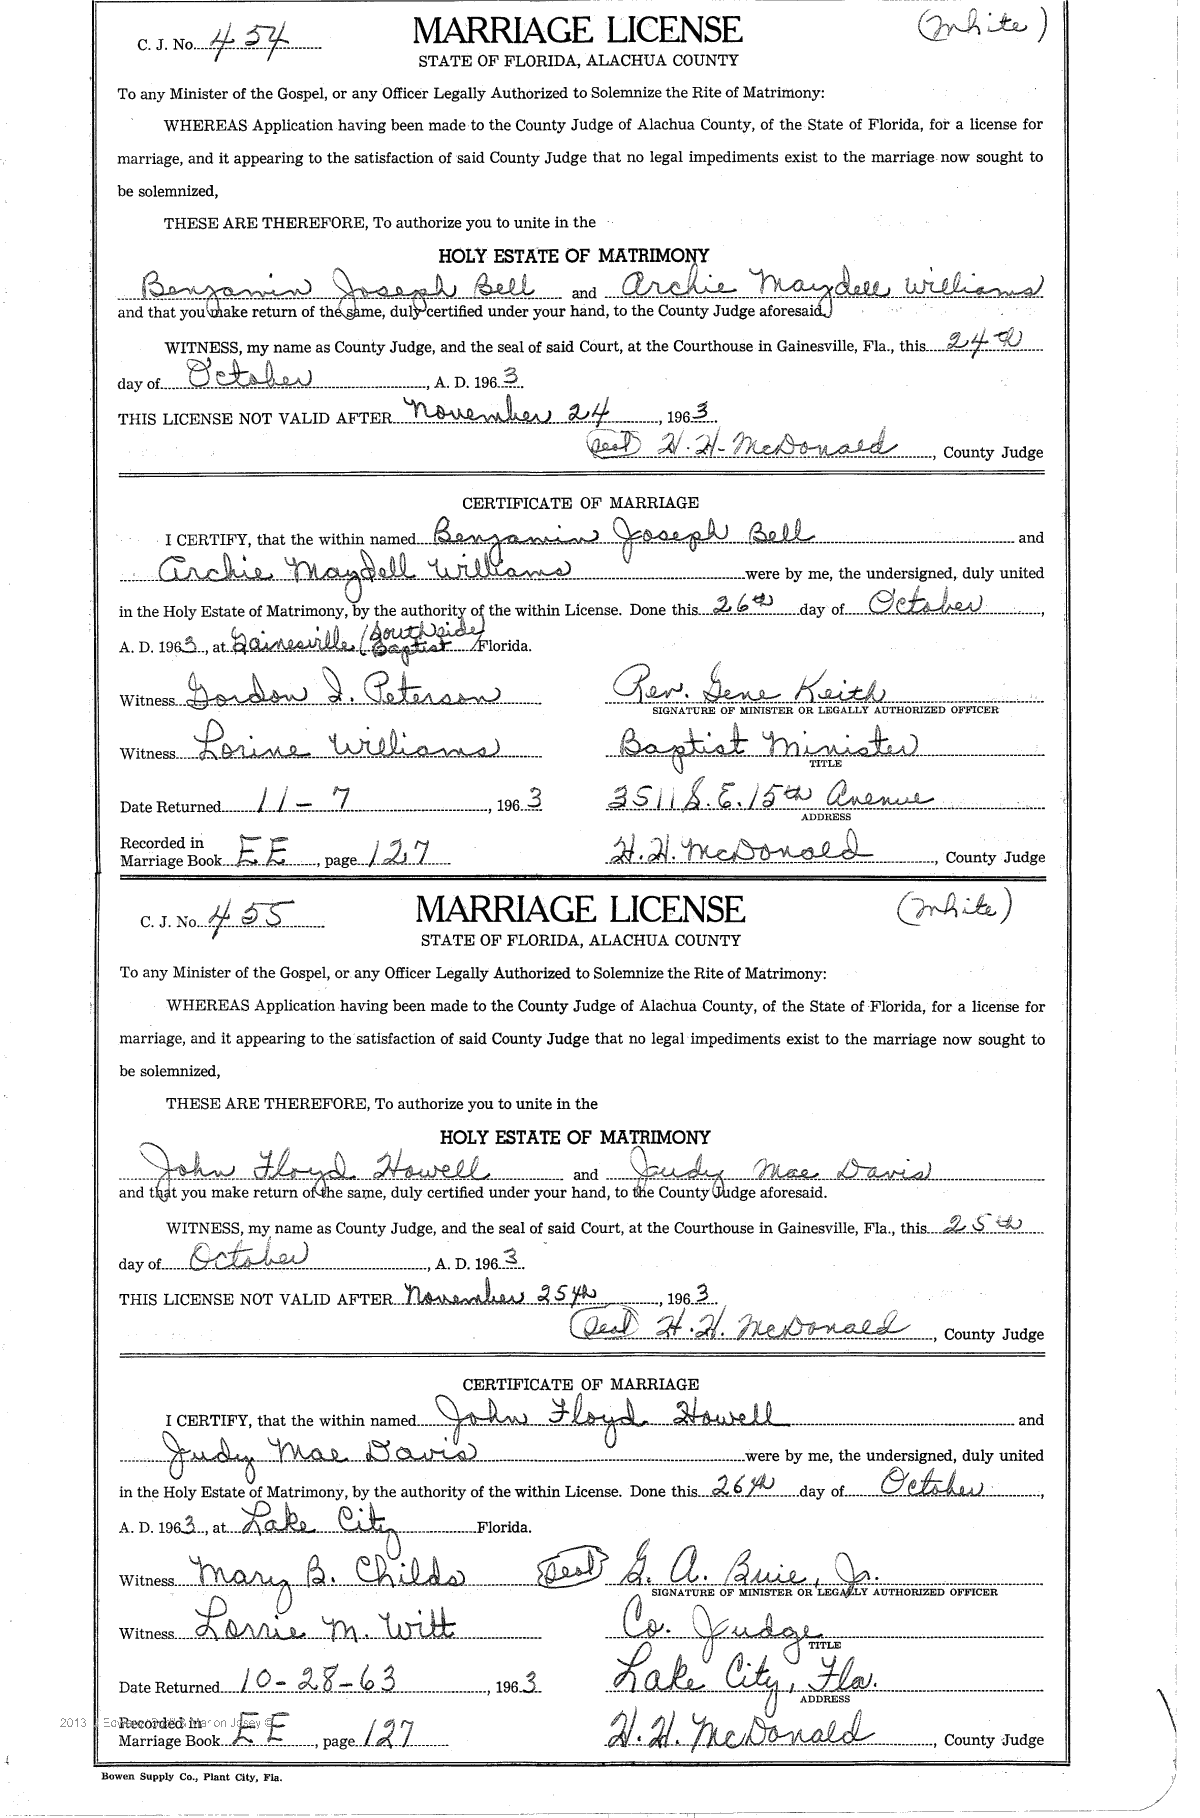 C. J. No. 454 MARRIAGE LICENSE (White)
STATE OF FLORIDA, ALACHUA COUNTY
To any Minister of the Gospel, or any Officer Legally Authorized to Solemnize the Rite of Matrimony:
WHEREAS Application having been made to the County Judge of Alachua County, of the State of Florida, for a license for
marriage, and it appearing to the satisfaction of said County Judge that no legal impediments exist to the marriage now sought to
be solemnized,
THESE ARE THEREFORE, To authorize you to unite in the
HOLY ESTATE OF MATRIMONY
Benjamin Joseph Bell and Archie Maydell Williams
and that you make return of the same, duly certified under your hand, to the County Judge aforesaid.
WITNESS, my name as County Judge, and the seal of said Court, at the Courthouse in Gainesville, Fla., this 24th
day of October, A. D. 1963.
THIS LICENSE NOT VALID AFTER November 24, 1963.
(Seal) H. H. McDonald, County Judge
CERTIFICATE OF MARRIAGE
I CERTIFY, that the within named Benjamin Joseph Bell and
Archie Maydell Williams were by me, the undersigned, duly united
in the Holy Estate of Matrimony, by the authority of the within License. Done this 26th day of October,
A. D. 1963, at Gainesville (Southside Baptist) Florida.
Witness Gordon I. Peterson Rev. Gene Keith
SIGNATURE OF MINISTER OR LEGALLY AUTHORIZED OFFICER
Witness Lorine Williams Baptist Minister
TITLE
Date Returned 11-7, 1963 3511 S. E. 15th Avenue
ADDRESS
Recorded in
Marriage Book EE, page 127 H. H. McDonald, County Judge
C. J. No. 455 MARRIAGE LICENSE (White)
STATE OF FLORIDA, ALACHUA COUNTY
To any Minister of the Gospel, or any Officer Legally Authorized to Solemnize the Rite of Matrimony:
WHEREAS Application having been made to the County Judge of Alachua County, of the State of Florida, for a license for
marriage, and it appearing to the satisfaction of said County Judge that no legal impediments exist to the marriage now sought to
be solemnized,
THESE ARE THEREFORE, To authorize you to unite in the
HOLY ESTATE OF MATRIMONY
John Floyd Howell and Judy Mae Davis
and that you make return of the same, duly certified under your hand, to the County Judge aforesaid.
WITNESS, my name as County Judge, and the seal of said Court, at the Courthouse in Gainesville, Fla., this 25th
day of October, A. D. 1963.
THIS LICENSE NOT VALID AFTER November 25th, 1963.
(Seal) H. H. McDonald, County Judge
CERTIFICATE OF MARRIAGE
I CERTIFY, that the within named John Floyd Howell and
Judy Mae Davis were by me, the undersigned, duly united
in the Holy Estate of Matrimony, by the authority of the within License. Done this 26th day of October,
A. D. 1963, at Lake City Florida.
Witness Mary B. Childs (Seal) G. A. Buie, Jr.
SIGNATURE OF MINISTER OR LEGALLY AUTHORIZED OFFICER
Witness Lorrie M. Witt Co. Judge
TITLE
Date Returned 10-28-63, 1963 Lake City, Fla.
ADDRESS
2013 Recorded in
Marriage Book EE, page 127 H. H. McDonald, County Judge
Bowen Supply Co., Plant City, Fla.